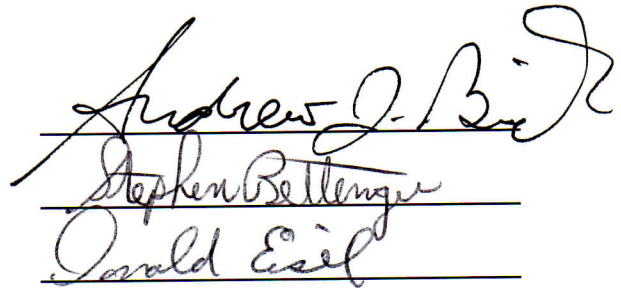 Andrew J.
Stephen Bettenger
Donald Eisel